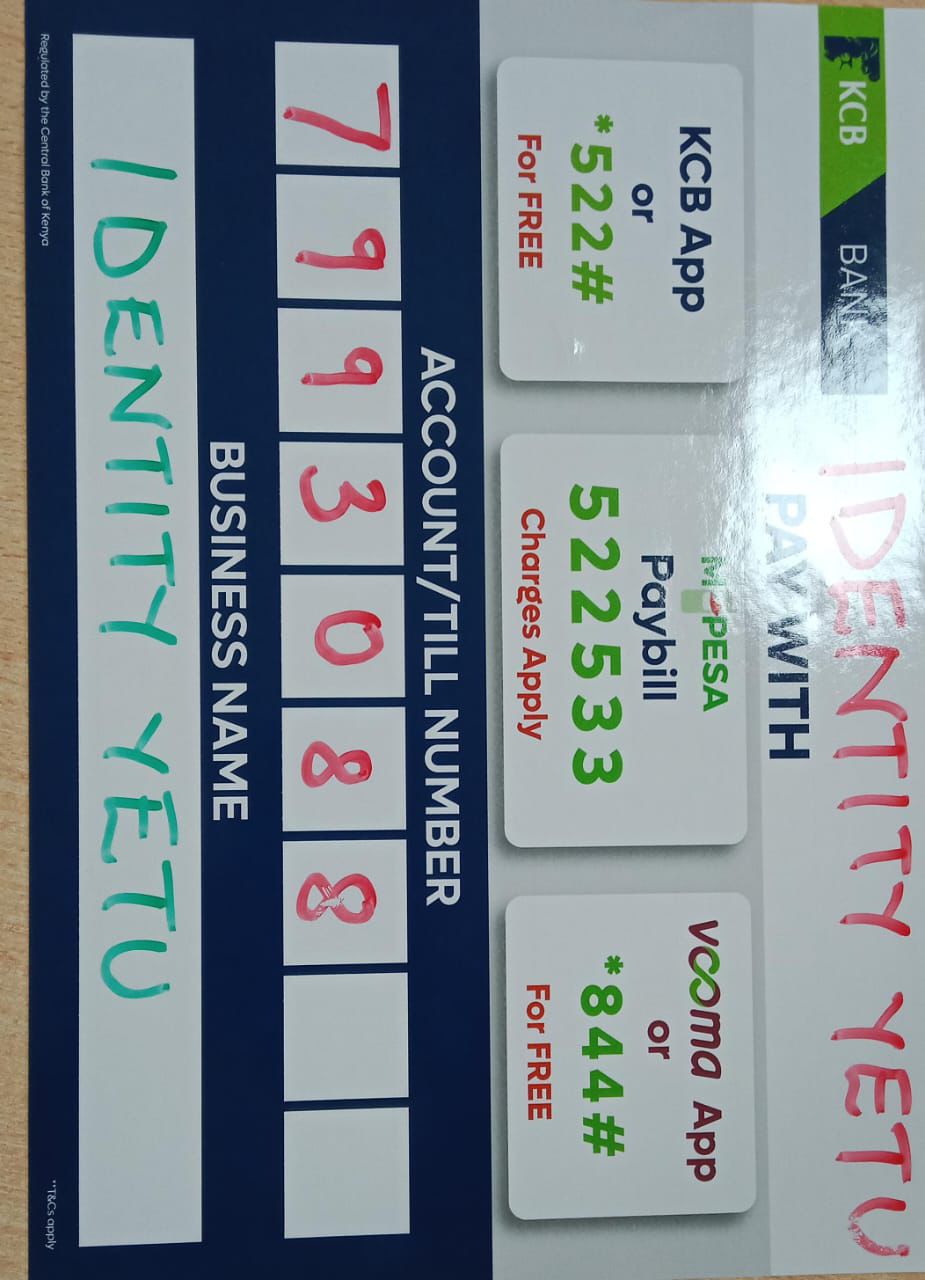 IDENTITY YETU
KCB BANK
PAY WITH
KCB App
or
*522#
For FREE
M-PESA
Paybill
522533
Charges Apply
vooma App
or
*844#
For FREE
ACCOUNT/TILL NUMBER
7993088
BUSINESS NAME
IDENTITY YETU
Regulated by the Central Bank of Kenya
**T&Cs apply